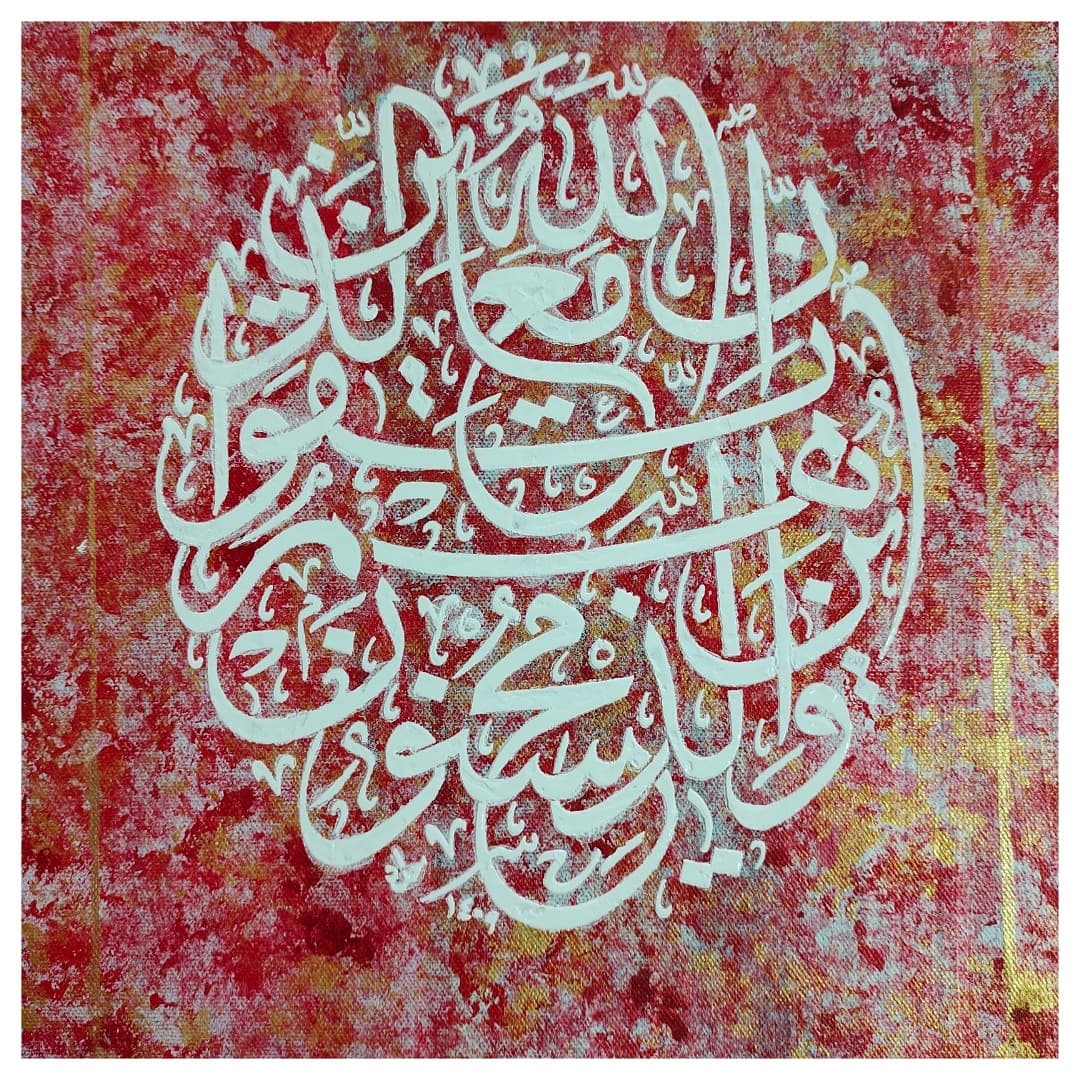 إِنَّ اللَّهَ مَعَ الَّذِينَ اتَّقَوا وَالَّذِينَ هُم مُّحْسِنُونَ